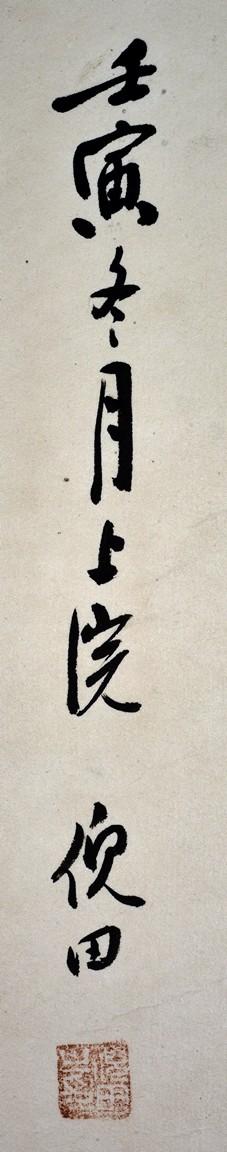 壬寅冬月上浣 倪田